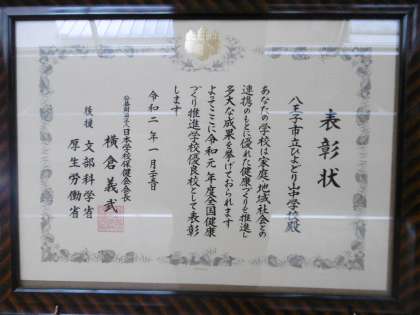 表彰状
八王子市立ひよどり山中学校殿
あなたの学校は家庭、地域社会との
連携のもとに優れた健康づくりを推進し
多大な成果を挙げておられます
よってここに令和元年度全国健康
づくり推進学校優良校として表彰
します
令和二年一月
公益財団法人日本学校保健会会長
横倉義武
後援 文部科学省
厚生労働省